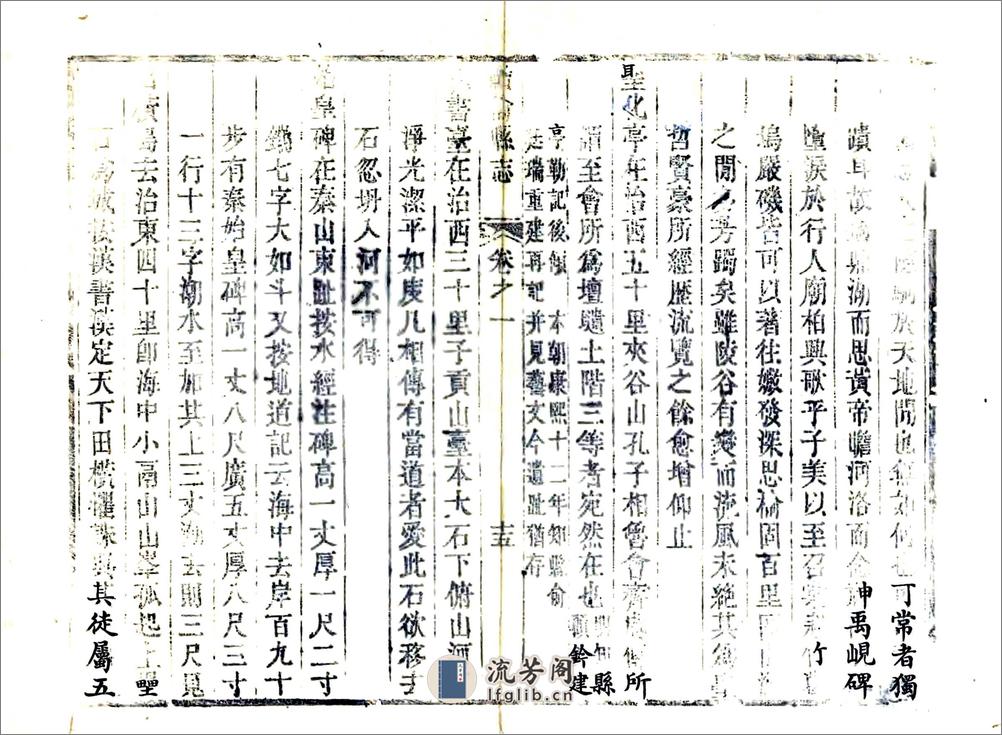 於天地間也無如何也可常者獨
蹟耳故鼎湖而思黃帝瞻河洛而念神禹峴碑
墮淚於行人廟柏興歌乎子美以至召棠竹
塢嚴磯皆可以著往嬍發深思榆固百里
之間乃芳躅矣雖陵谷有變而流風未絕其為
哲賢豪所經歷流覽之餘愈增仰止
聖化亭在治西五十里夾谷山孔子相魯會齊侯所
謂至會所為壇壝土階三等者宛然在也縣鈐建
亭勒記後傾本朝康熙十二年知縣俞
廷瑞重建再記并見藝文今遺趾猶存
縣志
卷之一
十五
書臺在治西三十里子貢山臺本大石下俯山河
淨光潔平如庋几相傳有當道者愛此石欲移去
石忽坍入河不可得
皇碑在秦山東趾按水經注碑高一丈厚一尺二寸
鐫七字大如斗又按地道記云海中去岸百九十
步有秦始皇碑高一丈八尺廣五丈厚八尺三寸
一行十三字潮水至加其上三丈潮去則三尺見
島去治東四十里郎海中小鬲山山峯孤起上壘
石為城按漢書漢定天下田橫懼誅與其徒屬五
流芳阁
lfglib.cn